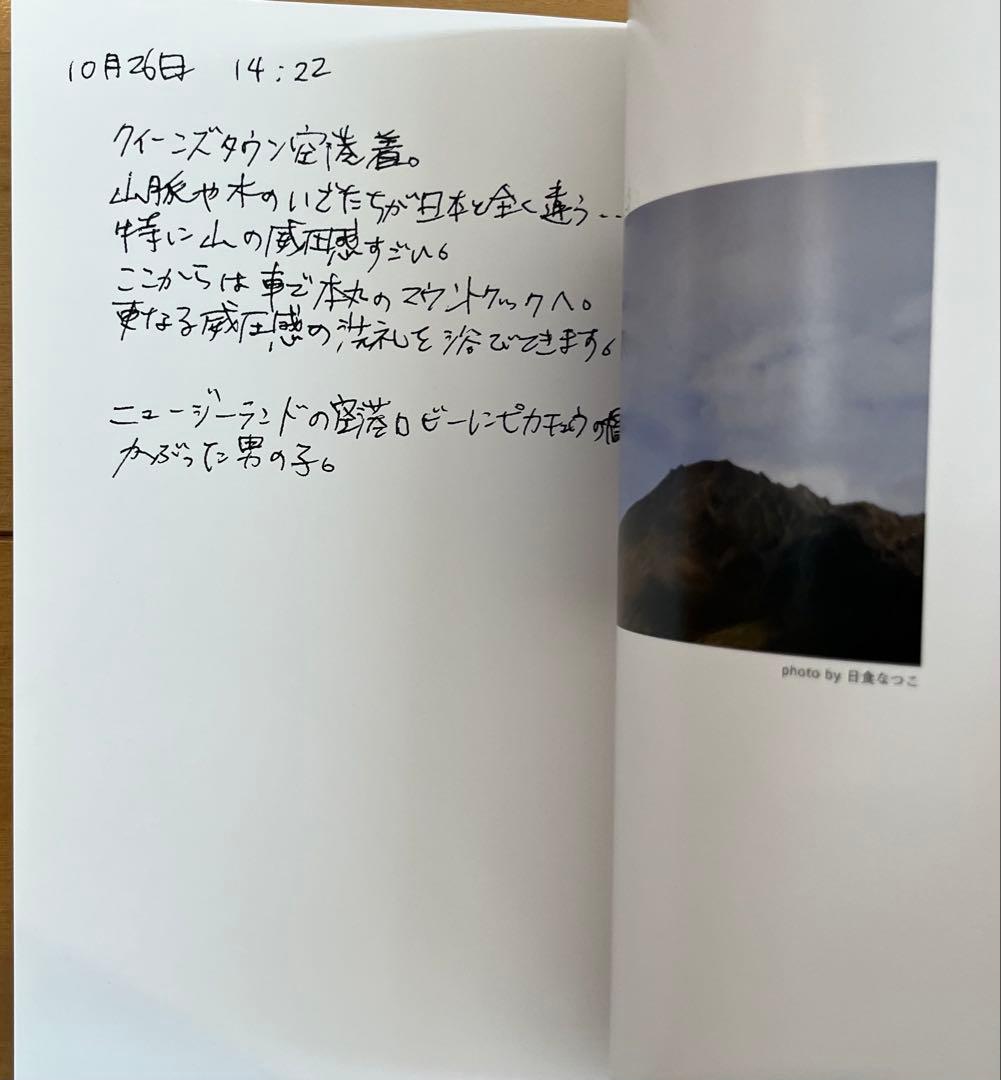 10月26日 14:22
クイーンズタウン空港着。
山脈や木のいでたちが日本と全く違う..
特に山の威圧感すごい。
ここからは車で本丸のマウントクックへ。
更なる威圧感の洗礼を浴びてきます。
ニュージーランドの空港ロビーにピカチュウの帽
かぶった男の子。
photo by 日食なつこ